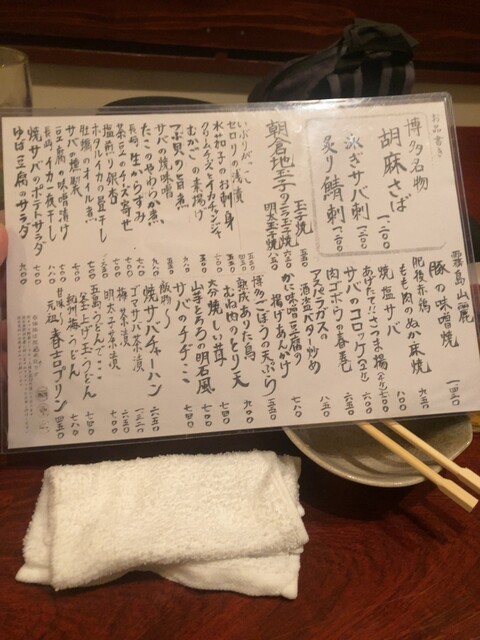 お品書き
博多名物
胡麻さば 一、二〇〇
泳ぎサバ刺 一、二〇〇
炙り鯖刺 一、二〇〇
朝倉地玉子の
玉子焼 五五〇
ニラ玉子焼 六五〇
明太玉子焼 八五〇
いぶりがっこ
セロリの浅漬
水茄子のお刺身
クリームチーズとイカチャンジャ
むかごの素揚げ
つぶ貝の旨煮
サバの焼味噌
たこのやわらか煮
長崎 生からすみ
茶豆のチーズ寄せ
塩煎り銀杏
ホタルイカの昆干し
牡蠣のオイル煮
サバの燻製
豆腐の味噌漬け
長崎 イカ一夜干し
焼サバのポテトサラダ
ゆば豆腐のサラダ
霧島山麓
豚の味噌焼
肥後赤鶏
もも肉のぬか床焼 九五〇
焼塩サバ 八〇〇
あげたて!!さつま揚
サバのコロッケ
肉ゴボウの春巻 六五〇
アスパラガスの
酒盗バター炒め 八五〇
かに味噌豆腐の
揚げあんかけ 七八〇
博多ごぼうの天ぷら 五五〇
熟成ありた鳥
むね肉のとり天
大分焼しい茸
山芋とろろの明石風
サバのチヂミ
飯物〜
焼サバチャーハン
ゴマサバ茶漬
梅茶漬
明太子茶漬
五島うどん
釜上げ玉うどん
紀州梅うどん
甘味〜
元祖 春吉プリン